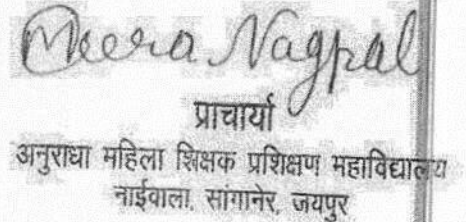 Meera Nagpal
प्राचार्या
अनुराधा महिला शिक्षक प्रशिक्षण महाविद्यालय
नाईवाला, सांगानेर, जयपुर